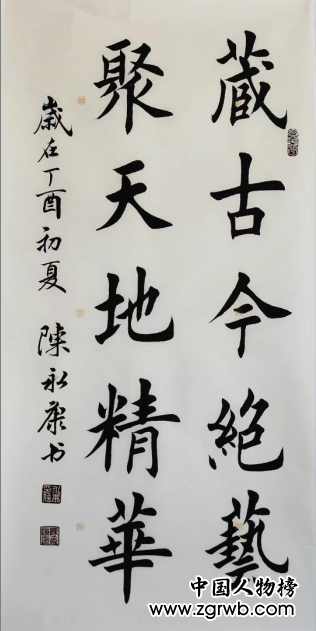 藏古今絕藝
聚天地精華
歲在丁酉初夏 陳永康书
中国人物榜
www.zgrwb.com